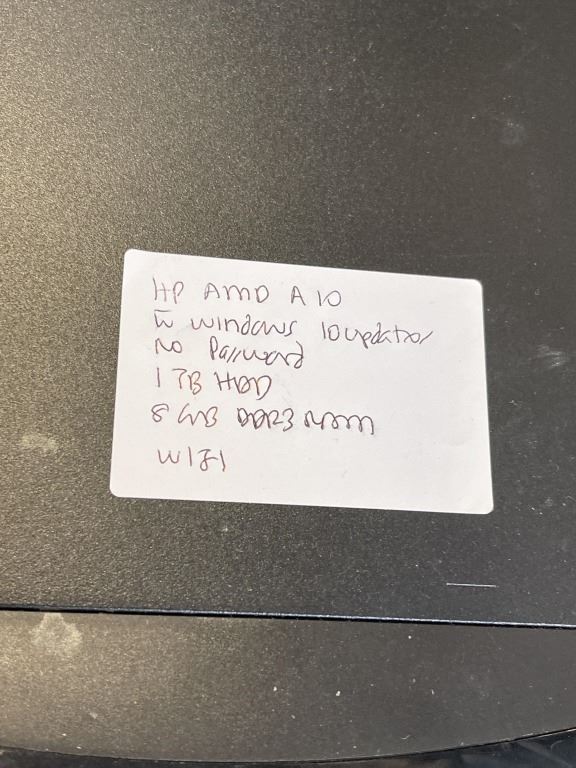 HP AMD A10
windows 10
No Password
1 TB HDD
8 GB DDR3 RAM
WIFI